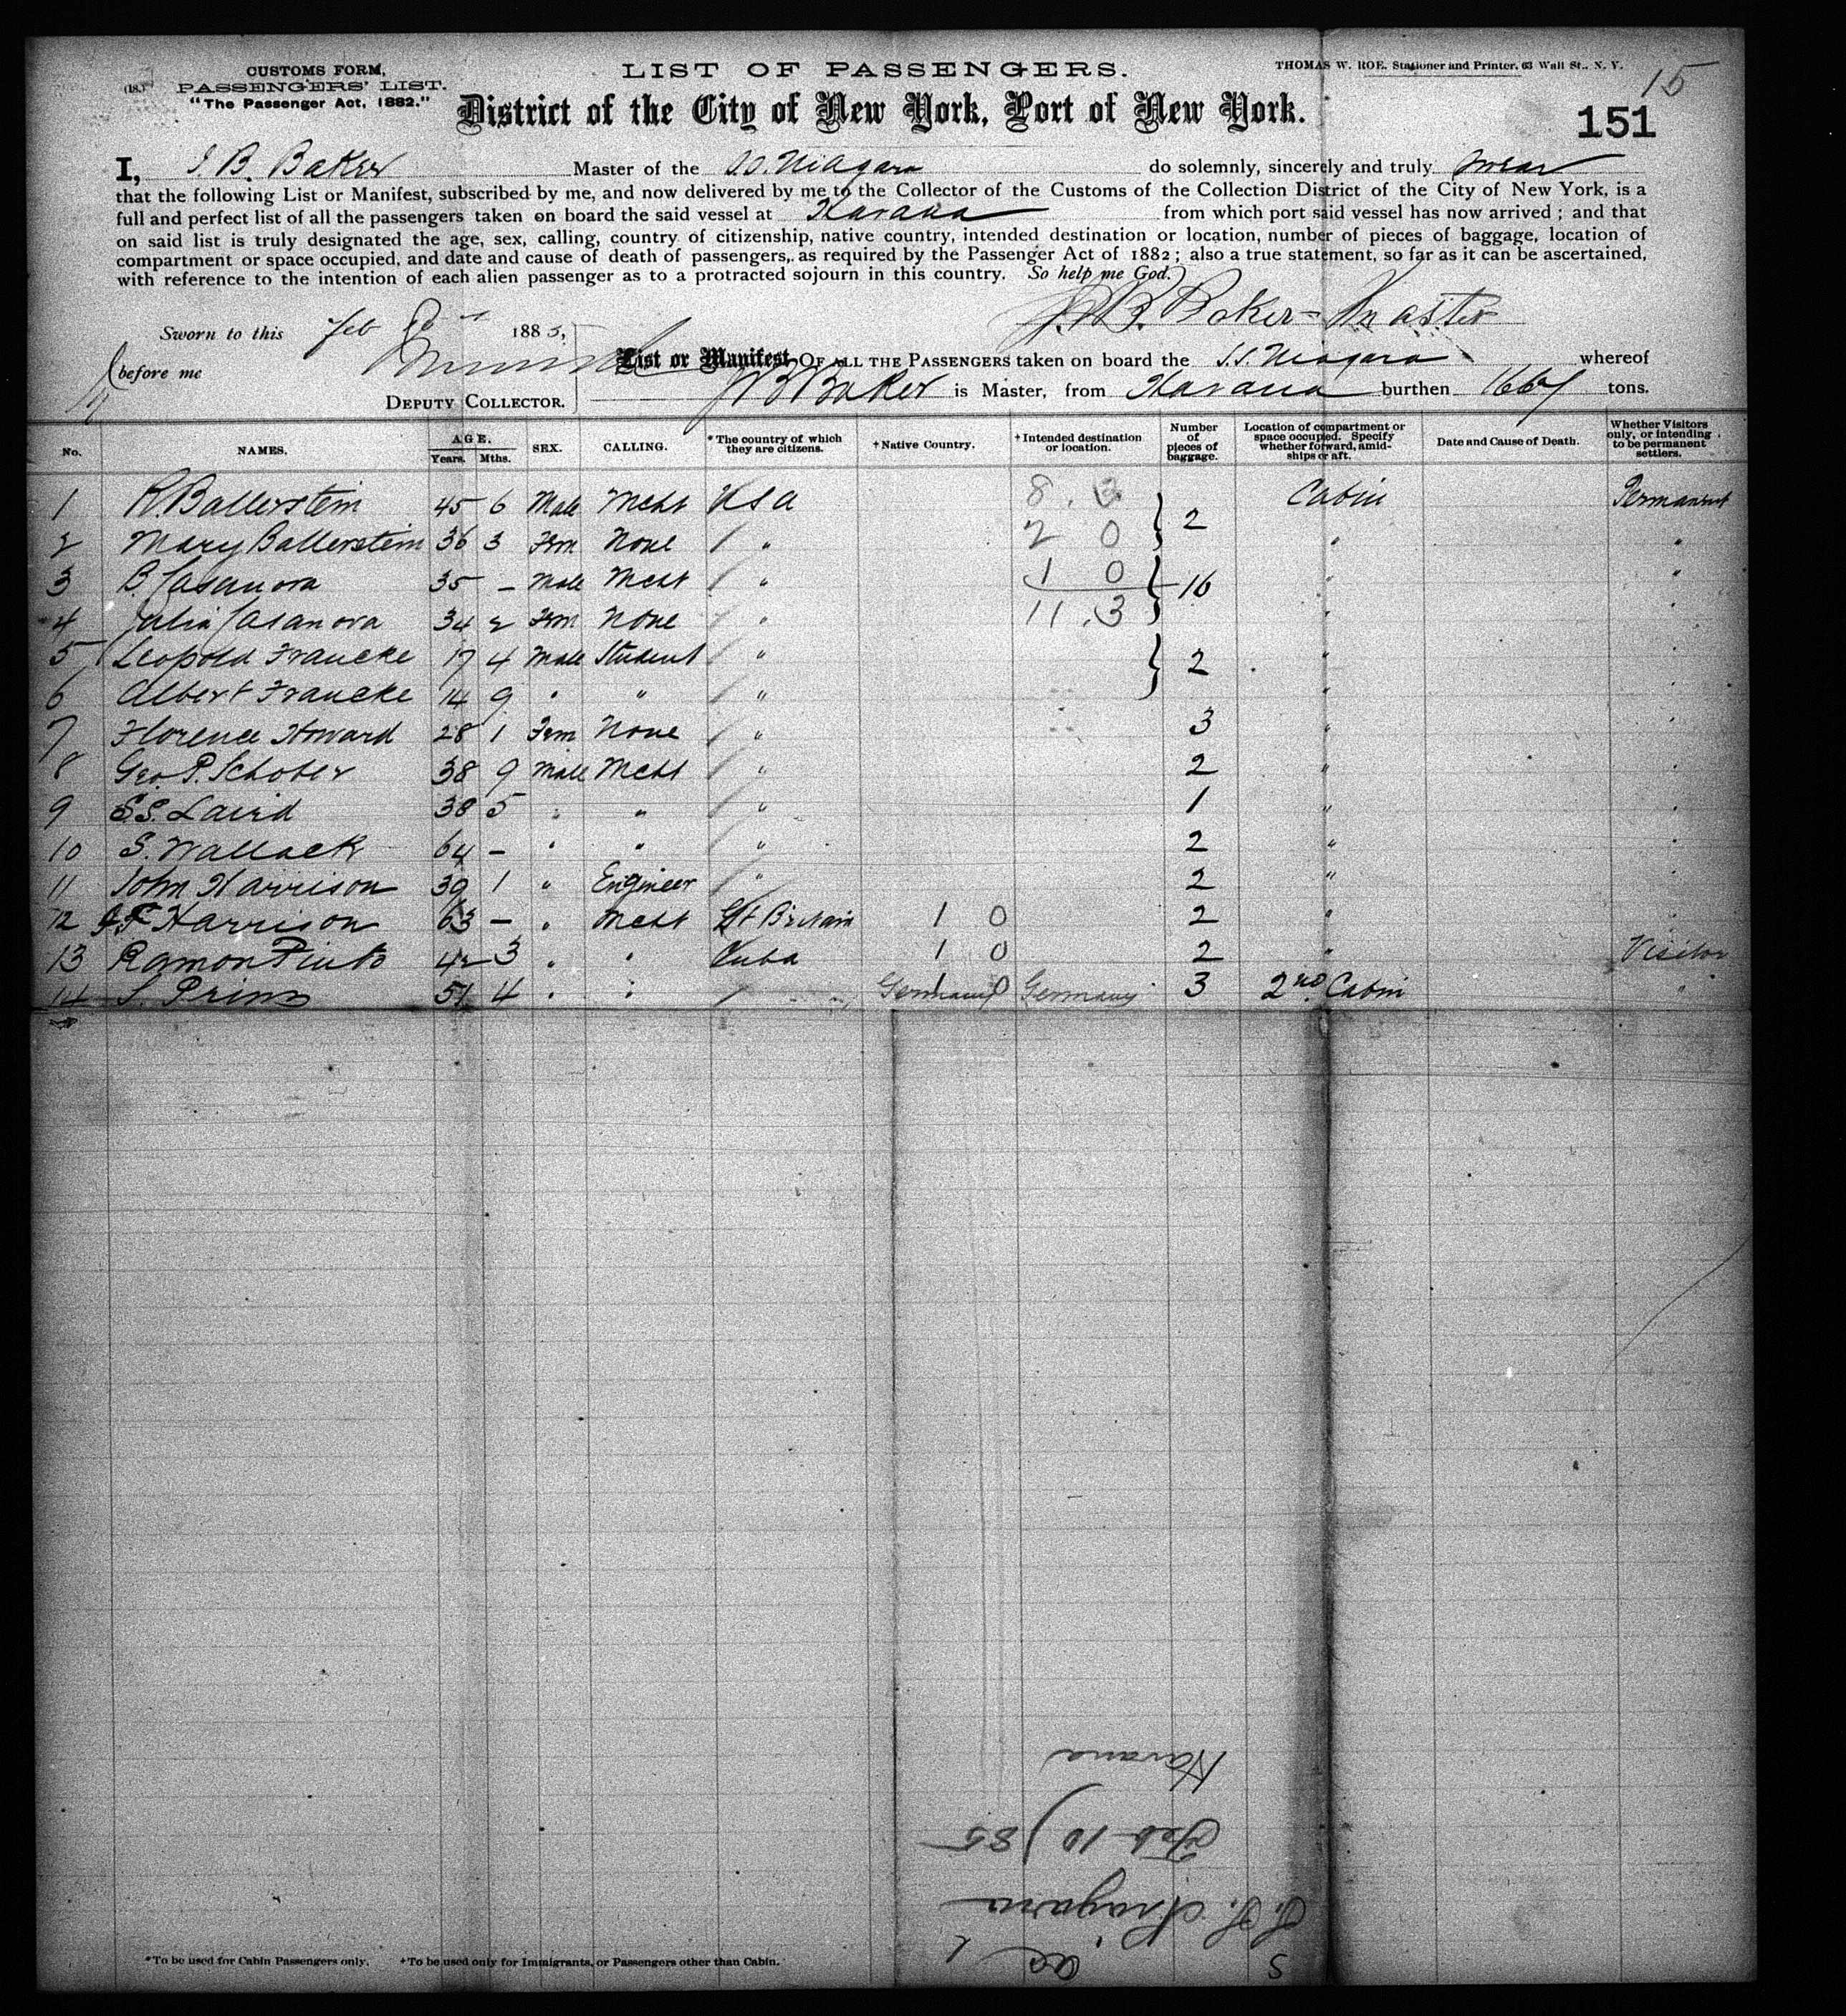 CUSTOMS FORM,
PASSENGERS' LIST.
"The Passenger Act, 1882."
LIST OF PASSENGERS.
THOMAS W. ROE, Stationer and Printer, 63 Wall St., N. Y.
15
151
District of the City of New York, Port of New York.
I, J. B. Baker Master of the S.S. Niagara do solemnly, sincerely and truly swear
that the following List or Manifest, subscribed by me, and now delivered by me to the Collector of the Customs of the Collection District of the City of New York, is a
full and perfect list of all the passengers taken on board the said vessel at Havana from which port said vessel has now arrived; and that
on said list is truly designated the age, sex, calling, country of citizenship, native country, intended destination or location, number of pieces of baggage, location of
compartment or space occupied, and date and cause of death of passengers, as required by the Passenger Act of 1882; also a true statement, so far as it can be ascertained,
with reference to the intention of each alien passenger as to a protracted sojourn in this country. So help me God.
J. B. Baker - Master
Sworn to this Feb 10 1885,
before me
DEPUTY COLLECTOR.
List or Manifest OF ALL THE PASSENGERS taken on board the S.S. Niagara whereof
J B Baker is Master, from Havana burthen 1667 tons.
No. NAMES. AGE. Years. Mths. SEX. CALLING. *The country of which they are citizens. †Native Country. †Intended destination or location. Number of pieces of baggage. Location of compartment or space occupied. Specify whether forward, amidships or aft. Date and Cause of Death. Whether Visitors only, or intending to be permanent settlers.
1 R. Ballerstein 45 6 Male Mcht USA 8 . 3 Cabin Permanent
2 Mary Ballerstein 36 3 Fem None / " 2 0 2 " "
3 B. Casanova 35 - Male Mcht / " 1 0 " "
4 Julia Casanova 34 2 Fem None / " 11 . 3 16 " "
5 Leopold Francke 17 4 Male Student / " 2 " "
6 Albert Francke 14 9 " " / " " "
7 Florence Howard 28 1 Fem None / " 3 " "
8 Geo. P. Schober 38 9 Male Mcht / " 2 " "
9 S.S. Laird 38 5 " " / " 1 " "
10 S. Wallack 64 - " " / " 2 " "
11 John Harrison 39 1 " Engineer / " 2 " "
12 Harrison 63 - " Mcht Gt Britain 1 0 2 " "
13 Ramon Pinto 42 3 " " Cuba 1 0 2 " Visitor
14 S. Prins 51 4 " " / Germany 0 Germany 3 2nd Cabin "
Havana
Feb 10/85
S. S. Niagara
*To be used for Cabin Passengers only. †To be used only for Immigrants, or Passengers other than Cabin.